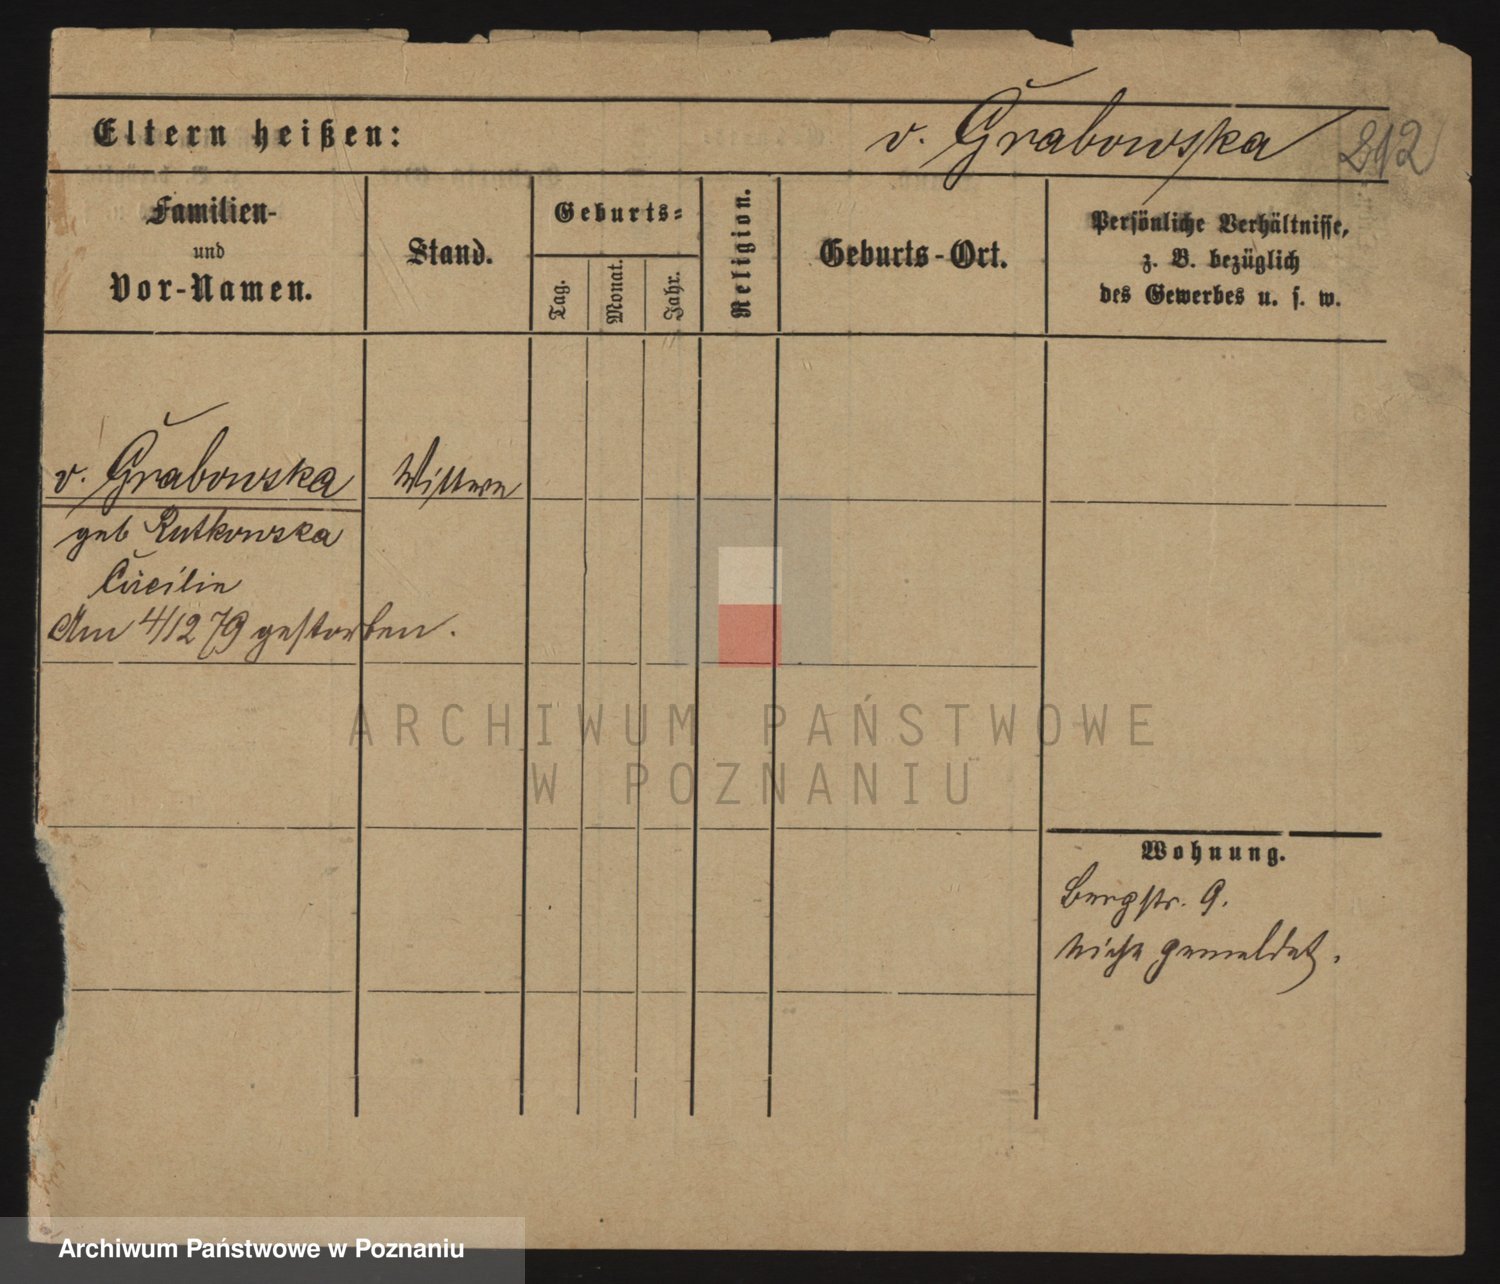 Eltern heißen:
v. Grabowska
212
Familien-
und
Vor-Namen.
Stand.
Geburts-
Tag.
Monat.
Jahr.
Religion.
Geburts-Ort.
Persönliche Verhältnisse,
z. B. bezüglich
des Gewerbes u. s. w.
v. Grabowska
Wittwe
geb Rutkowska
Cäcilie
Am 4/12 79 gestorben.
ARCHIWUM PAŃSTWOWE
W POZNANIU
Wohnung.
Bergstr. 9.
nicht gemeldet.
Archiwum Państwowe w Poznaniu